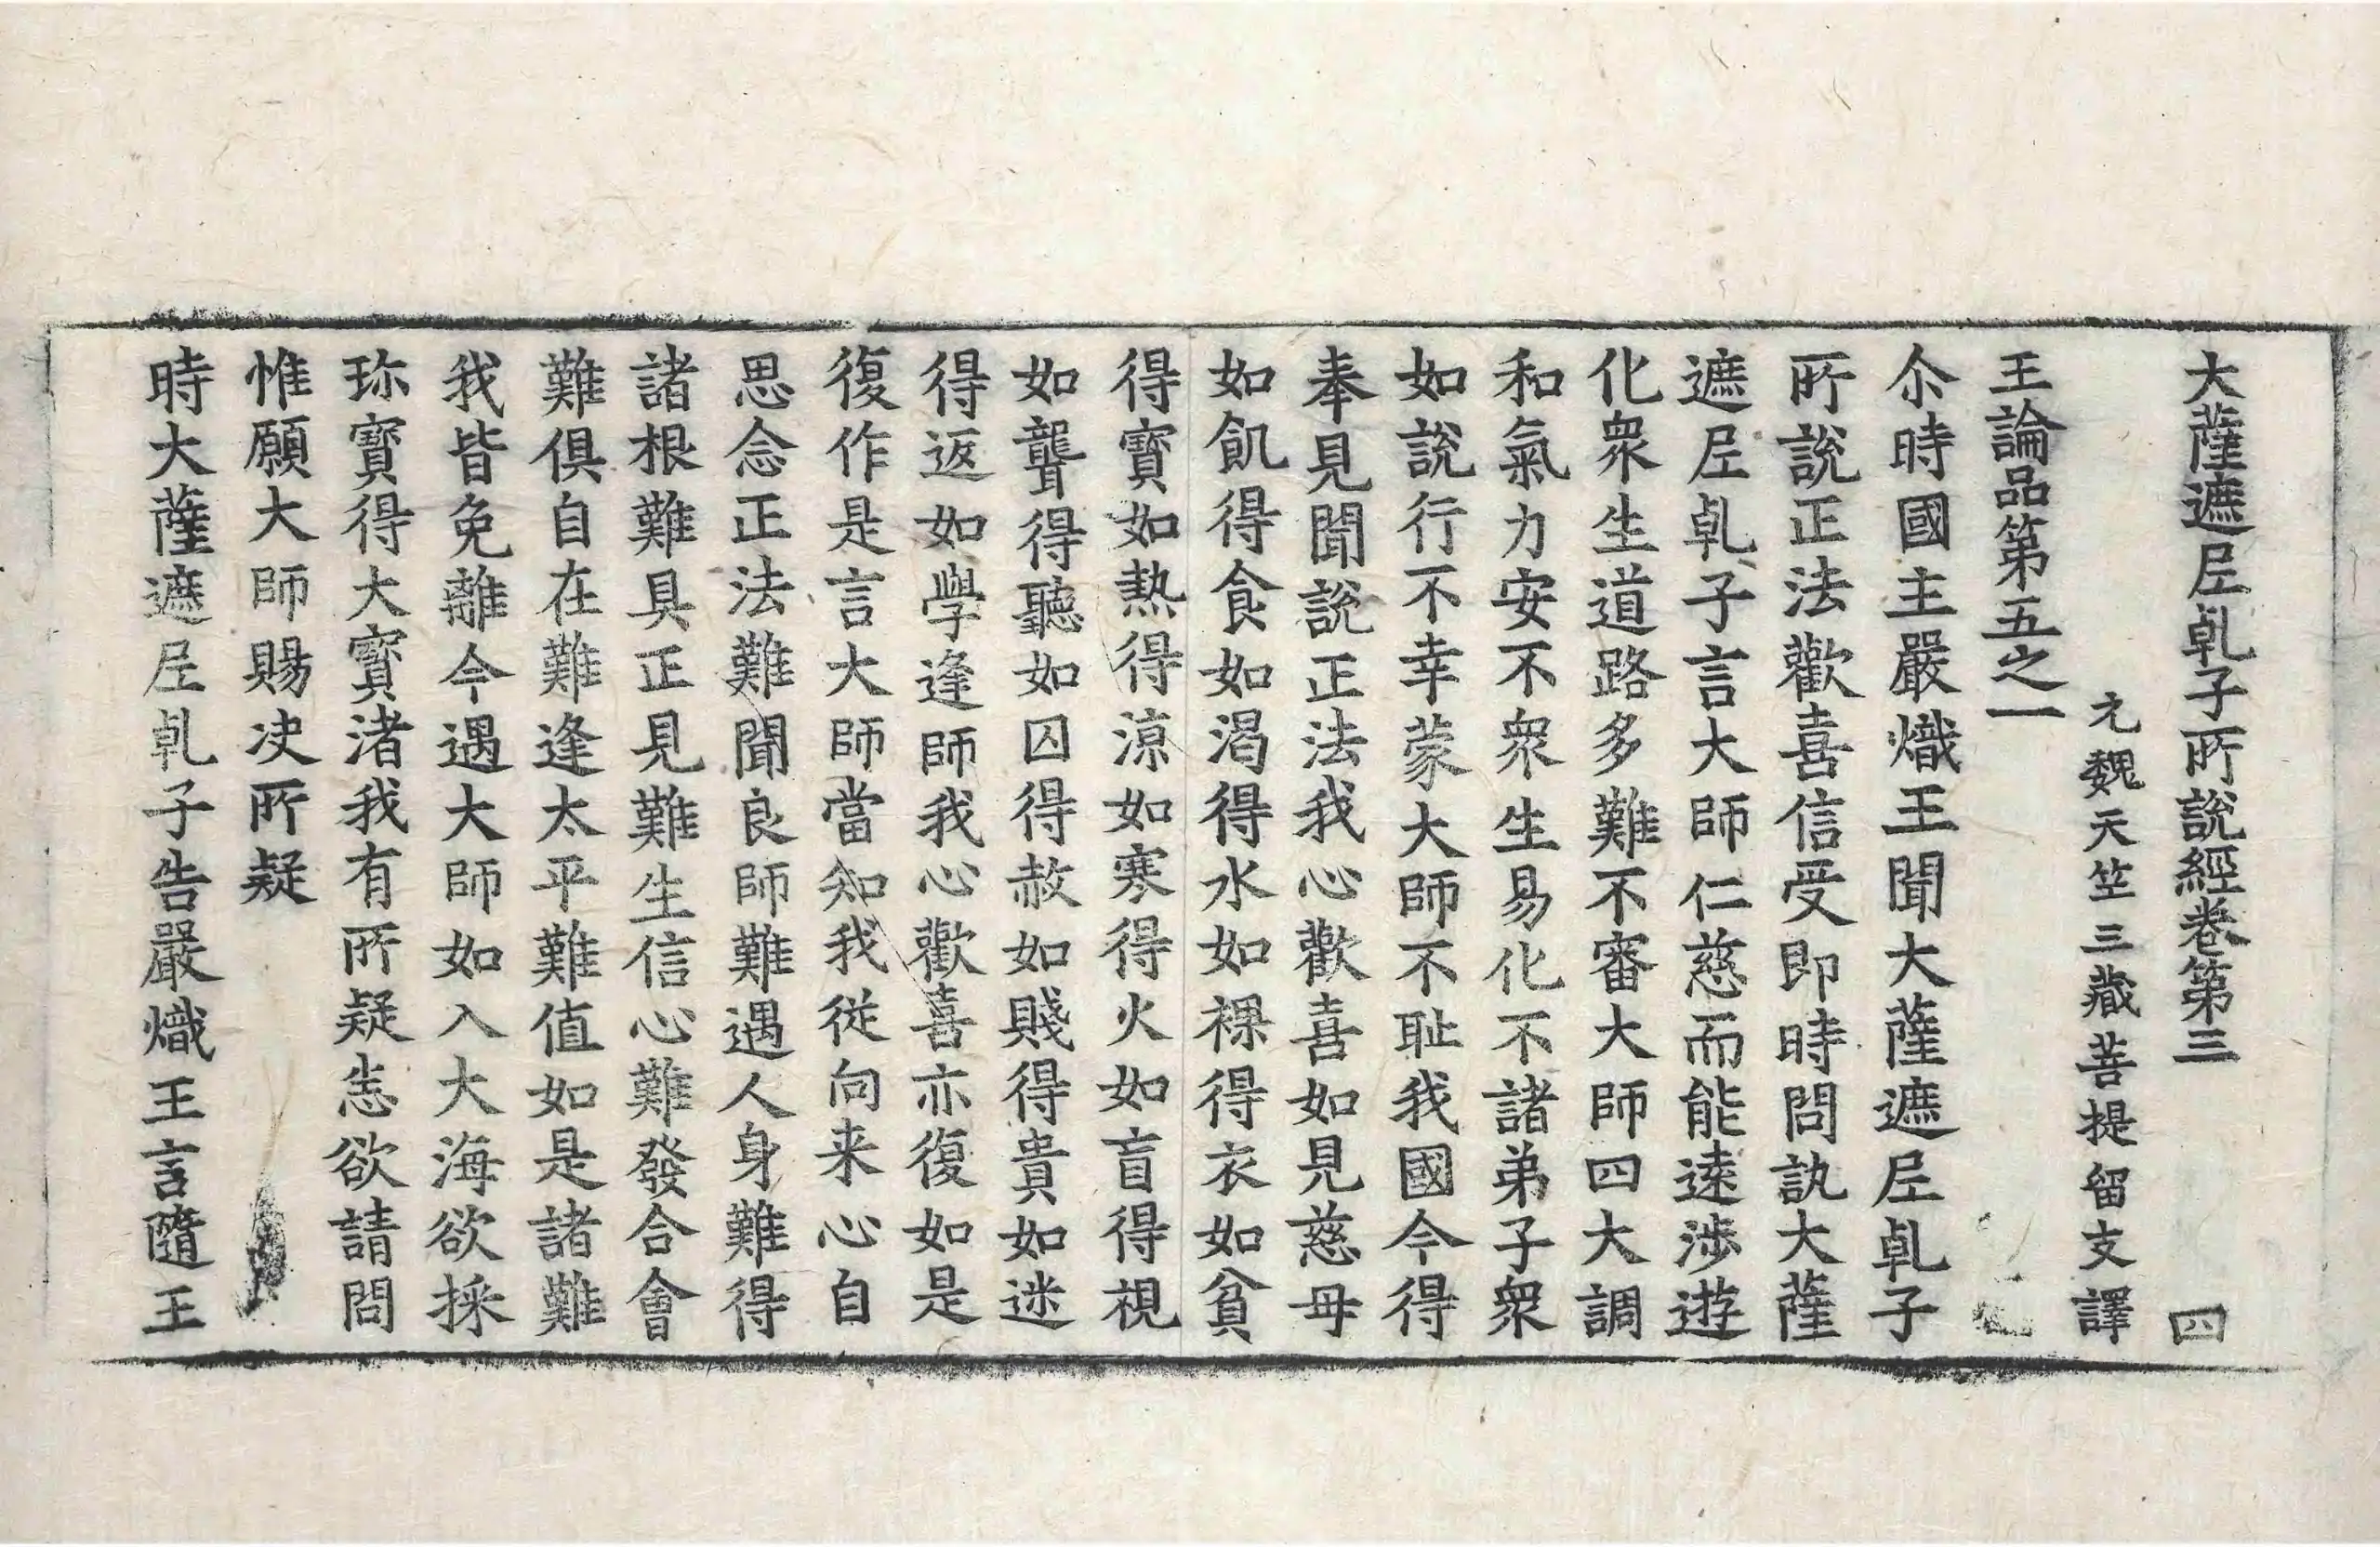 大薩遮𡰱乹子所說經卷第三　四
元魏天竺三藏菩提留支譯
王論品第五之一
尒時國主嚴熾王聞大薩遮𡰱乹子
所說正法歡喜信受即時問訊大薩
遮𡰱乹子言大師仁慈而能逺渉遊
化衆生道路多難不審大師四大調
和氣力安不衆生易化不諸弟子衆
如說行不幸蒙大師不耻我國今得
奉見聞說正法我心歡喜如見慈母
如飢得食如渴得水如裸得衣如貧
得寳如熱得涼如寒得火如盲得視
如聾得聽如囚得赦如賤得貴如迷
得返如學逢師我心歡喜亦復如是
復作是言大師當知我從向来心自
思念正法難聞良師難遇人身難得
諸根難具正見難生信心難發合會
難俱自在難逢太平難值如是諸難
我皆免離今遇大師如入大海欲採
珎寳得大寳渚我有所疑恣欲請問
惟願大師賜决所疑
時大薩遮𡰱乹子告嚴熾王言隨王